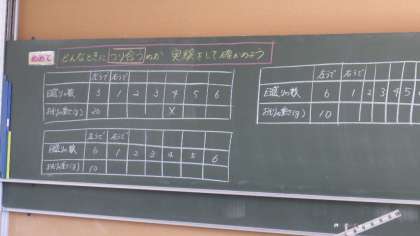 めあて どんなときに つり合うのか 実験をして確かめよう
左うで 右うで
目盛りの数 3 1 2 3 4 5 6
おもりの重さ(g) 20 X
左うで 右うで
目盛りの数 6 1 2 3 4 5 6
おもりの重さ(g) 10
左うで 右うで
目盛りの数 6 1 2 3 4 5
おもりの重さ(g) 10